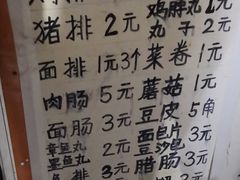 鸡脖丸1
猪排 2元 丸子2元
面排 1元3个 菜卷1元
肉肠 5元 蘑菇1元
面肠 3元 豆皮5角
章鱼丸 2元 面包片
墨鱼丸 豆沙包
鱼排 3元 腊肠